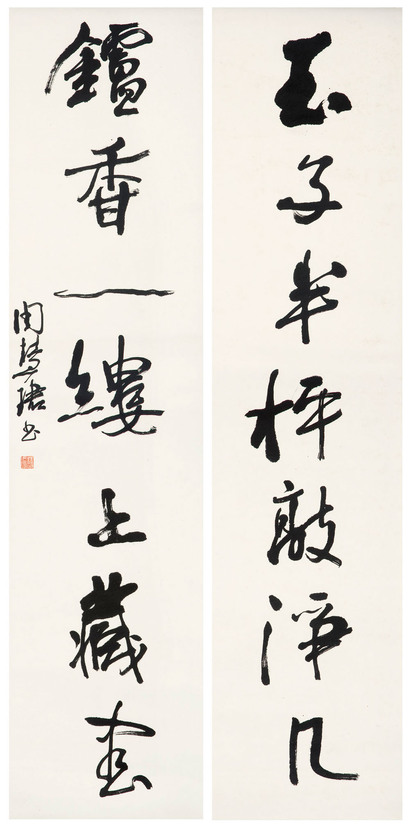 玉子半枰敲淨几
鑪香一縷上藏書
周慧珺书